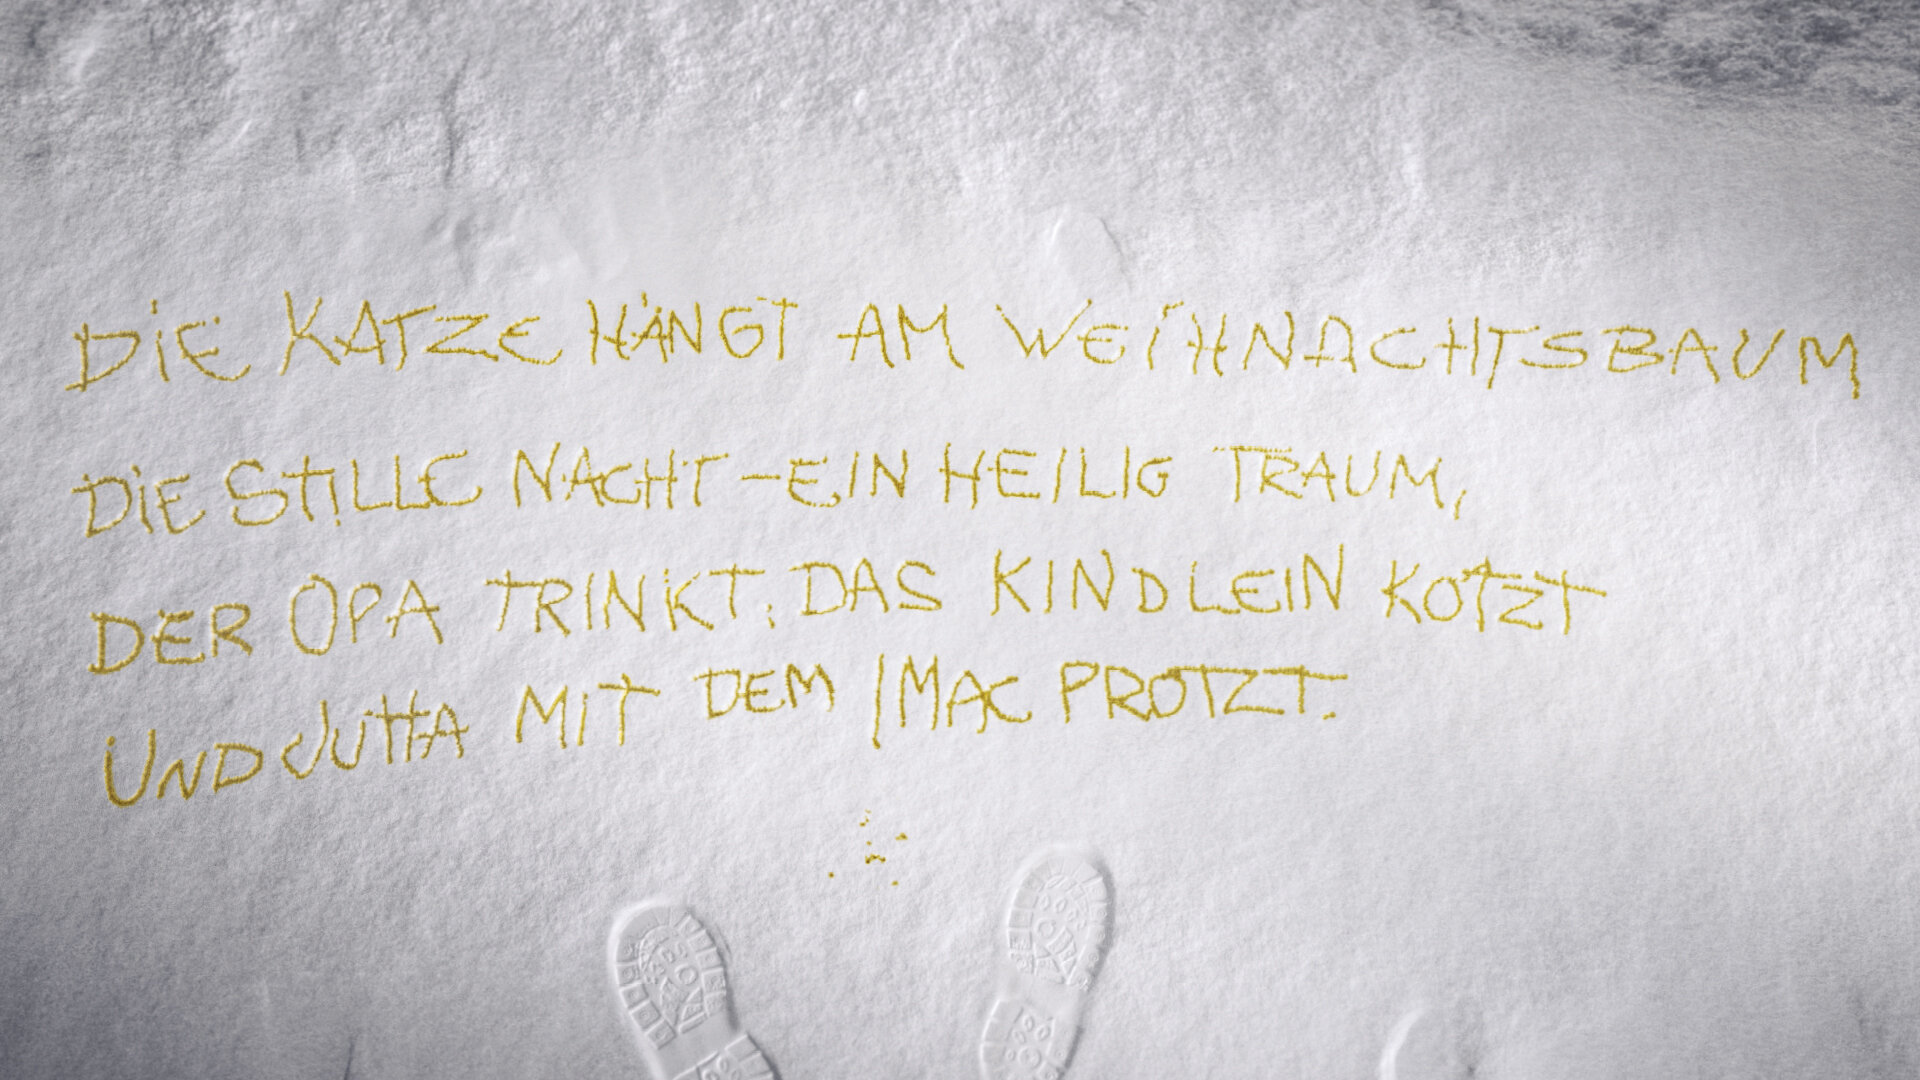 DIE KATZE HÄNGT AM WEIHNACHTSBAUM
DIE STILLE NACHT - EIN HEILIG TRAUM,
DER OPA TRINKT. DAS KINDLEIN KOTZT
UND JUTTA MIT DEM IMAC PROTZT.